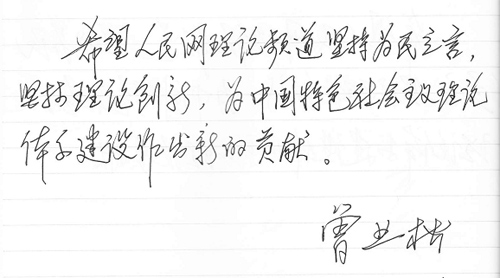 希望人民网理论频道坚持为民立言，
坚持理论创新，为中国特色社会主义理论
体系建设作出新的贡献。
曾业松